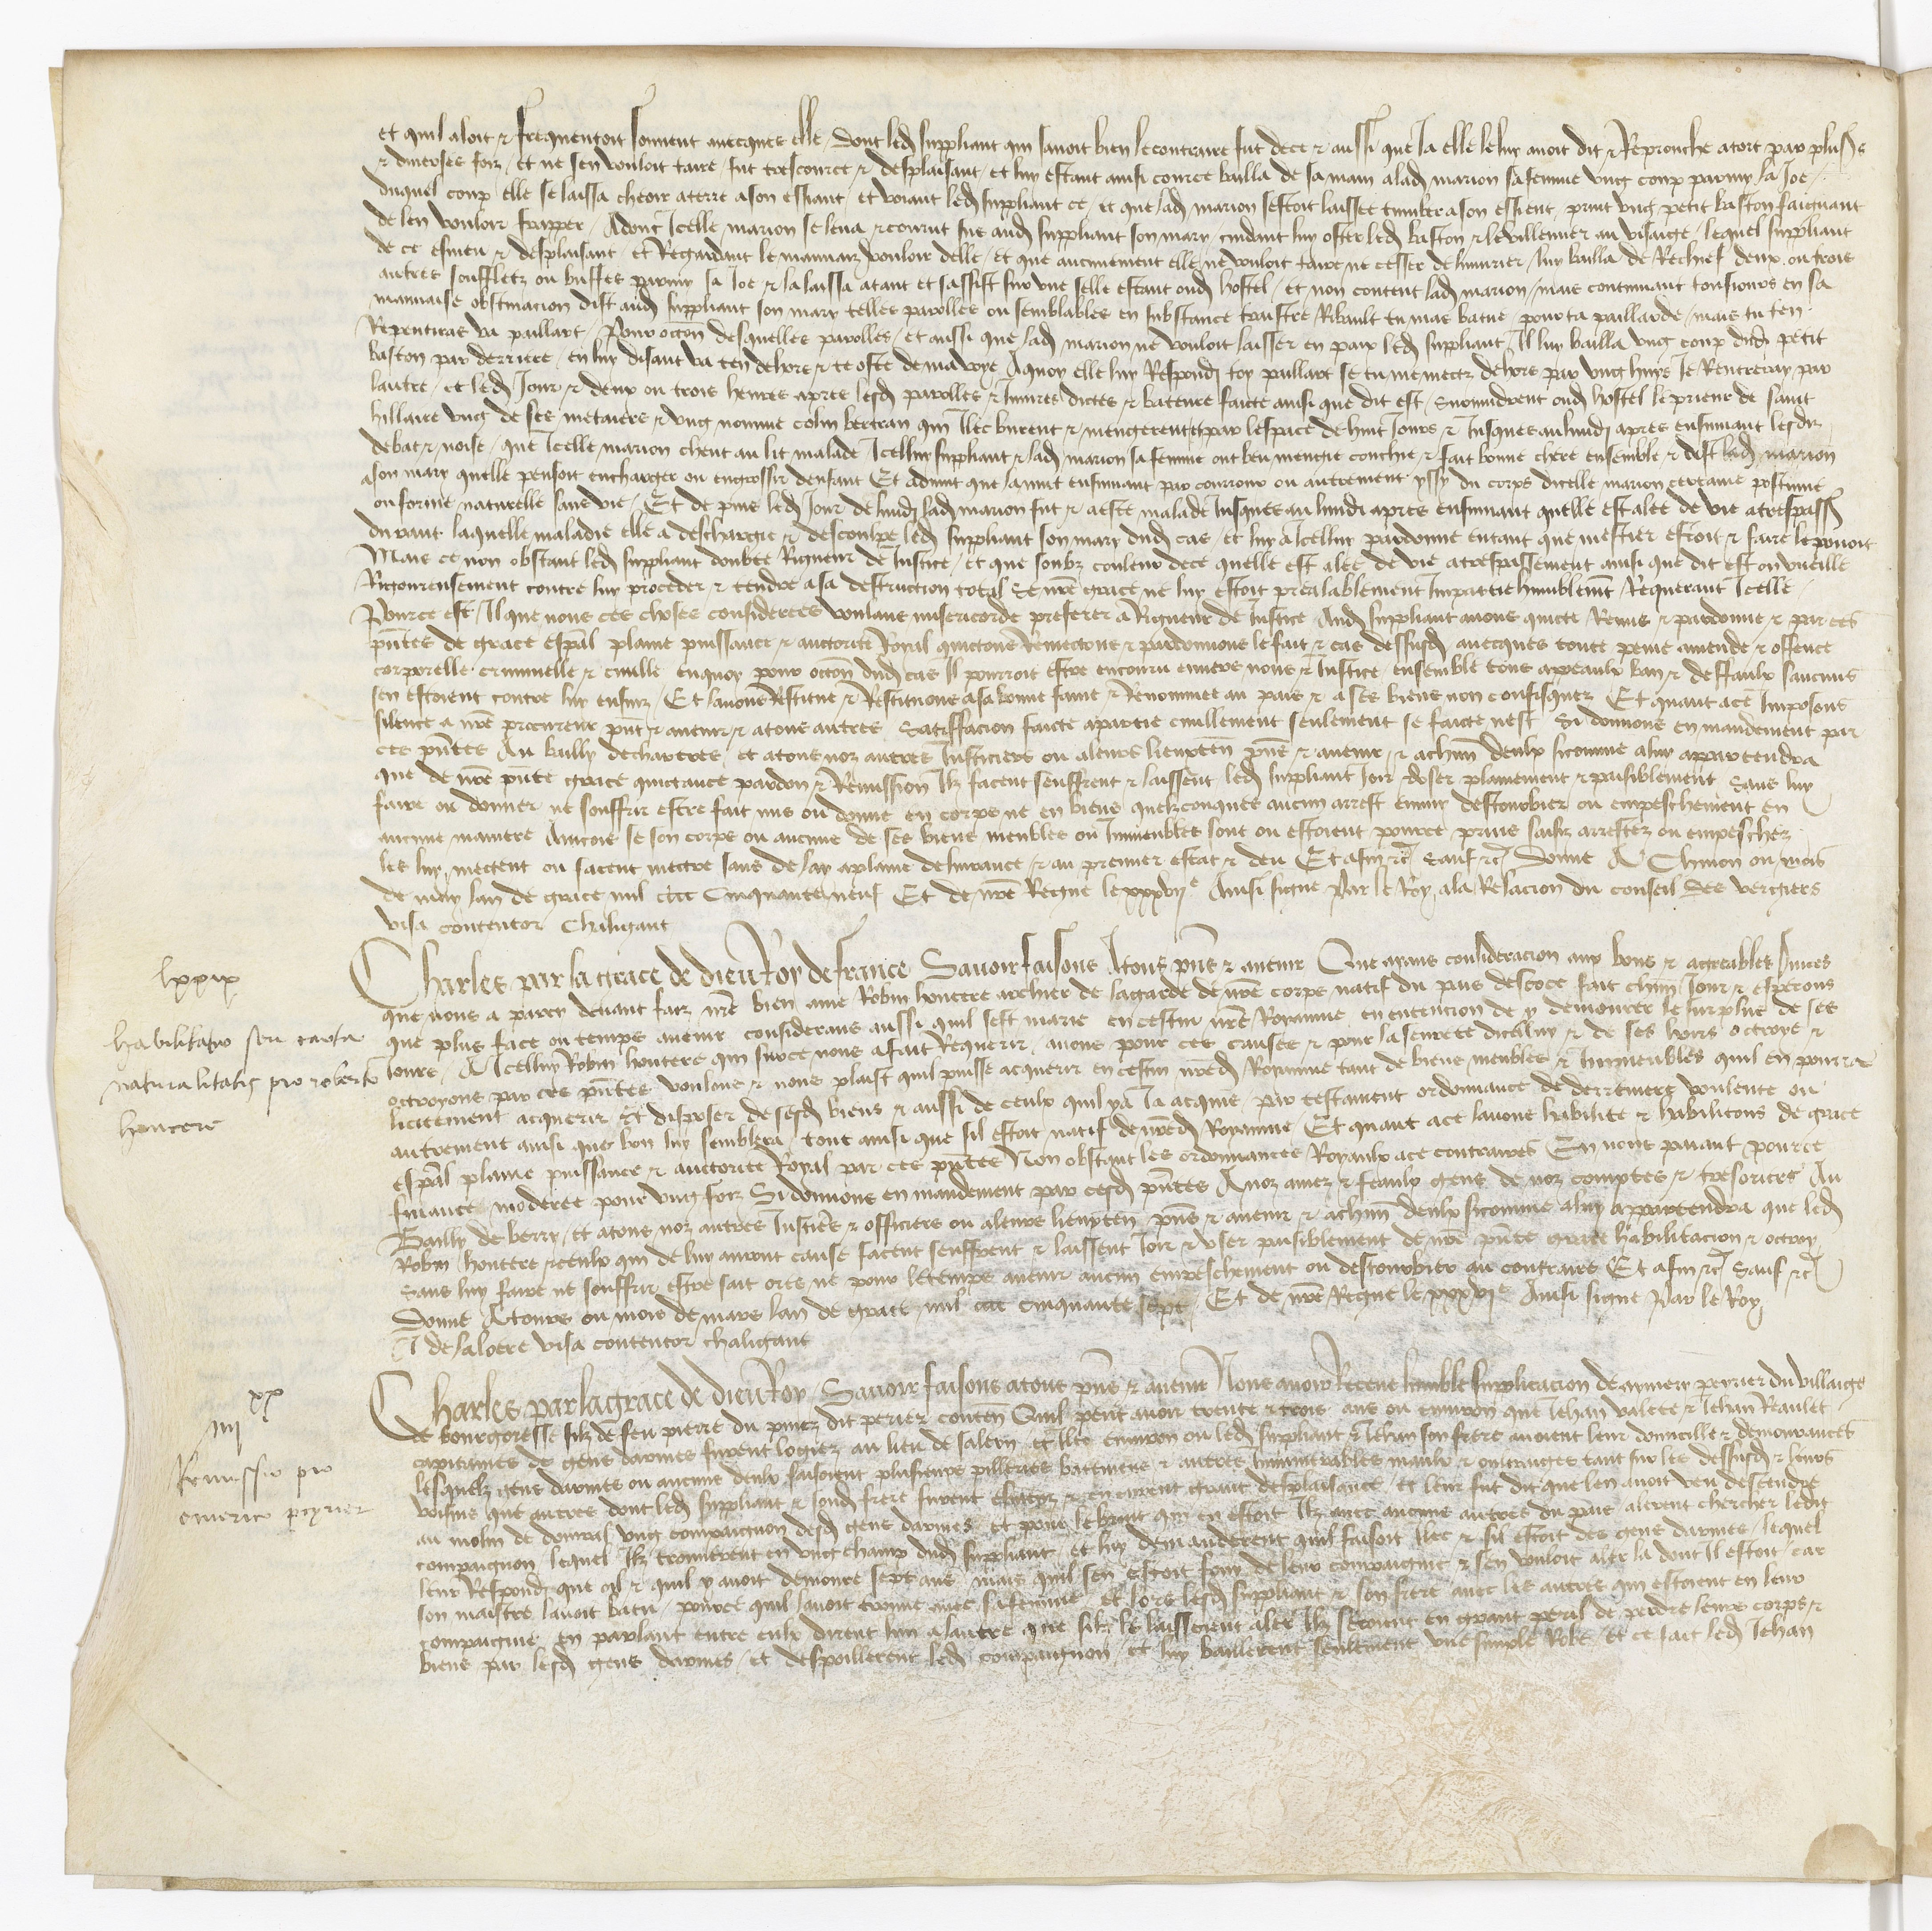 et quil aloit et frequentoit souvent avecques elle dont led suppliant qui savoit bien le contraire fut de ce et aussi que ja elle le luy avoit dit et reprouche a tort par plus
et diverses foiz et ne sen vouloit taire fut tres courcé et desplaisant et luy estant ainsi courcé bailla de sa main a lad marion sa femme ung coup parmy la joe
duquel coup elle se laissa cheoir a terre a son essiant et voiant led suppliant ce et que lad marion sestoit laissee tumber a son essient print ung petit baston faignant
de len vouloir frapper Adonc Icelle marion se leva et courut sus aud suppliant son mary cuidant luy oster led baston et le villenner au visaige lequel suppliant
de ce esmeu et desplaisant et Regardant le mauvaiz vouloir delle et que aucunement elle ne vouloit taire ne cesser de linjurier luy bailla de Rechief deux ou trois
autres souffletz ou buffes parmy la joe et la laissa atant et sassist sur une selle estant oud hostel et non content lad marion mais continuant tousjours en sa
mauvaise obstinacion dist aud suppliant son mary telles parolles ou semblables en substance traistre Ribault tu mas batue pour ta paillarde mais tu ten
Repentiras va paillart Pour occon desquelles parolles et aussi que lad marion ne vouloit laisser en paix led suppliant Il luy bailla ung coup dud petit
baston par derriere en luy disant va ten dehors et te oste de ma voye A quoy elle luy Respondi toy paillart se tu me mectz dehors par ung huys Je Rentreray par
lautre et led Jour et deux ou trois heures apres lesd parolles et Injures dictes et bateure faicte ainsi que dit est survindrent oud hostel le prieur de saint
hillaire ung de ses metaiers et ung nomme colin bertran qui illec burent et mengerent et par lespace de huit Jours et Jusques au lundi apres ensuivant lesdiz
debat et noise que Icelle marion cheut au lit malade Icelluy suppliant et lad marion sa femme ont beu mengie couchie et fait bonne chere ensemble et dist lad marion
a son mary quelle pensoit encharger ou engrossir denfant Et advint que la nuit ensuivant par courroux ou autrement yssy du corps dicelle marion certaine posture
ou forme naturelle sans vie Et depuis led Jour de lundi lad marion fut et a esté malade Jusques au lundi apres ensuivant quelle est alee de vie a trespass
durant laquelle maladie elle a deschargie et descoulpe led suppliant son mary dud cas et luy a Icelluy pardonne entant que mestier estoit et faire le povoit
Mais ce non obstant led suppliant doubte Rigueur de Justice et que soubz couleur de ce quelle est alee de vie a trespassement ainsi que dit est on vueille
Rigoureusement contre luy proceder et tendre a sa destruction total Se nre grace ne luy estoit prealablement Impartie humblemt Requerant Icelle
Pource est Il que nous ces choses considerees voulans misericorde preferer a Rigueur de Justice Aud suppliant avons quicte Remis et pardonne et par ces
pntes de grace espal plaine puissance et auctorite Royal quictons Remectons et pardonnons le fait et cas dessusd avecques toute peine amende et offence
corporelle criminelle et civille enquoy pour occon dud cas Il pourroit estre encouru envers nous et Justice ensemble tous appeaulx ban et deffaulx saucuns
sen estoient contre luy ensuiz Et lavons Restitue et Restituons a sa bonne fame et Renommee au pais et a ses biens non confisquez Et quant a ce Imposons
silence a nre procureur pnt et avenir et a tous autres Satisfacion faicte a partie civillement seulement se faicte nest Si donnons en mandement par
ces pntes Au bailly de chartres et a tous noz autres Justiciers ou a leurs lieuxten pns et avenir et a chun deulx sicomme a luy appartendra
que de nre pnte grace quictance pardon et Remission Ilz facent seuffrent et laissent led suppliant Joir user plainement et paisiblement sans luy
faire ou donner ne souffrir estre fait mis ou donne en corps ne en biens quelzconques aucun arrest ennuy destourbier ou empeschement en
aucune maniere Aincois se son corps ou aucuns de ses biens meubles ou Immeubles sont ou estoient pource prins saisiz arrestez ou empeschez
les luy mectent ou facent mectre sans delay a plaine delivrance et au premier estat et deu Et afin etc Sauf etc Donne A Chinon ou mois
de may lan de grace mil cccc cinquante neuf Et de nre Regne le xxxvije Ainsi signe Par le Roy a la Relacion du conseil Des vergiers
visa contentor Chaligant
lxxix
habilitatio seu carta
naturalitatis pro roberto
houcere
Charles par la grace de dieu Roy de france Savoir faisons A tous pns et avenir Que ayans consideracion aux bons et agreables svices
que nous a parcy devant faiz nre bien ame Robin houcere archier de la garde de nre corps natif du pais descoce fait chun Jour et esperons
que plus face ou temps avenir considerans aussi quil sest marie en cestui nre Royaume en entencion de y demourer le surplus de ses
Jours A Icelluy Robin houcere qui sur ce nous a fait Requerir avons pour ces causes et pour la seurete dicelluy et de ses hoirs octroye et
octroyons par ces pntes voulons et nous plaist quil puisse acquerir en cestui nred Royaume tant de biens meubles et Immeubles quil en pourra
licitement acquerir Et disposer de sesd biens et aussi de ceulx quil y a Ja acquis par testament ordonnance de derreniere voulente ou
autrement ainsi que bon luy semblera tout ainsi que sil estoit natif de nred Royaume Et quant a ce lavons habilite et habilitons de grace
espal plaine puissance et auctorite Royal par ces pntes Non obstant les ordonnances Royaulx a ce contraires En nous paiant pource
finance moderee pour une foiz Si donnons en mandement par cesd pntes A noz amez et feaulx gens de noz comptes et tresoriers Au
Bailly de berry et a tous noz autres Justiciers et officiers ou a leurs lieuxten pns et avenir et a chun deulx sicomme a luy appartendra que led
Robin houcere et ceulx qui de luy auront cause facent seuffrent et laissent Joir et user paisiblement de nre pnte grace habilitacion et octroy
Sans luy faire ne souffrir estre fait ores ne pour le temps avenir aucun empeschement ou destourbier au contraire Et afin etc Sauf etc
Donne A tours ou mois de mars lan de grace mil cccc cinquante sept Et de nre Regne le xxxvje Ainsi signe Par le Roy
J de laloere visa contentor chaligant
iiijxx
Remissio pro
emerico peyrier
Charles par la grace de dieu Roy Savoir faisons a tous pns et avenir Nous avoir Receue humble supplicacion de aymery peyrier du villaige
de bourgoresse filz de feu pierre du puiez dit perier conten Quil peut avoir trente et trois ans ou environ que Jehan valete et Jehan Raulet
capitaines de gens darmes furent logiez au lieu de salern et illec environ ou led suppliant et Jehan son frere avoient leur domicille et demourances
lesquelz gens darmes ou aucuns deulx faisoient plusieurs pilleries batemens et autres Innumerables maulx et oultraiges tant sur les dessusd et leurs
voisins que autres dont led suppliant et sond frere furent et en eurent grant desplaisance et leur fut dit que len avoit veu descendre
au molin de ung compaignon desd gens darmes et pour le bruit qui en estoit Ilz avec aucuns autres du pais alerent chercher ledit
compaignon lequel Ilz trouverent en ung champ dud suppliant et luy demanderent quil faisoit illec et sil estoit des gens darmes lequel
leur Respondi que oil et quil y avoit demoure sept ans mais quil sen estoit fouy de leur compaignie et sen vouloit aler la dont Il estoit car
son maistre lavoit batu pource quil lavoit trouve avec sa femme et lors lesd suppliant et son frere avec les autres qui estoient en leur
compaignie en parlant entre eulx dirent lun a lautre que silz le laissoient aler Ilz seroient en grant peril de perdre leurs corps et
biens par lesd gens darmes et despoillerent led compaignon et luy baillerent seulement une simple Robe et ce fait led Jehan